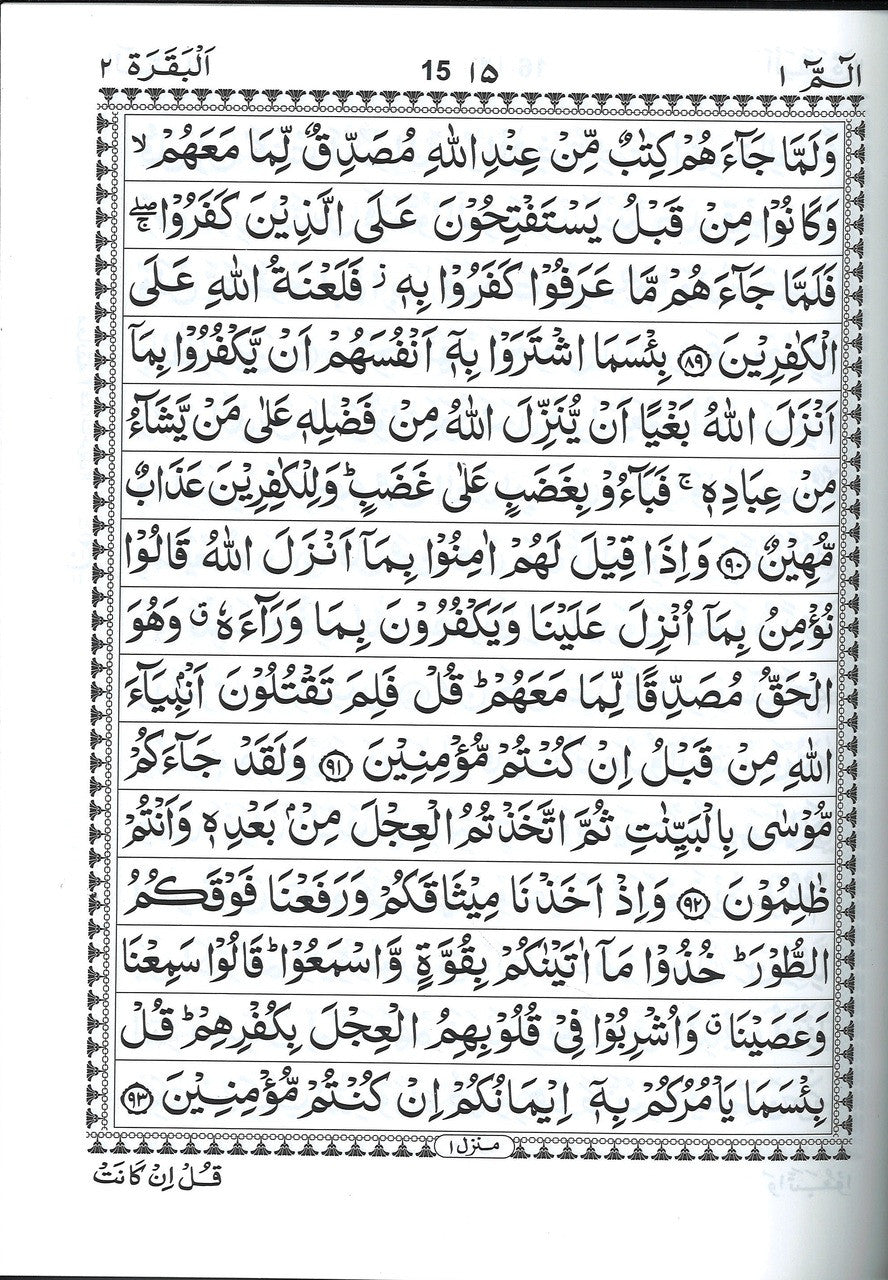 الٓمّٓ ١ ١٥ 15 اَلْبَقَرَة ٢
وَلَمَّا جَآءَهُمْ كِتٰبٌ مِّنْ عِنْدِ اللّٰهِ مُصَدِّقٌ لِّمَا مَعَهُمْ ۙ
وَكَانُوْا مِنْ قَبْلُ يَسْتَفْتِحُوْنَ عَلَى الَّذِيْنَ كَفَرُوْا ۚۖ
فَلَمَّا جَآءَهُمْ مَّا عَرَفُوْا كَفَرُوْا بِهٖ ز فَلَعْنَةُ اللّٰهِ عَلَى
الْكٰفِرِيْنَ ۝٨٩ بِئْسَمَا اشْتَرَوْا بِهٖٓ اَنْفُسَهُمْ اَنْ يَّكْفُرُوْا بِمَآ
اَنْزَلَ اللّٰهُ بَغْيًا اَنْ يُّنَزِّلَ اللّٰهُ مِنْ فَضْلِهٖ عَلٰى مَنْ يَّشَآءُ
مِنْ عِبَادِهٖ ۚ فَبَآءُوْ بِغَضَبٍ عَلٰى غَضَبٍ ؕ وَلِلْكٰفِرِيْنَ عَذَابٌ
مُّهِيْنٌ ۝٩٠ وَاِذَا قِيْلَ لَهُمْ اٰمِنُوْا بِمَآ اَنْزَلَ اللّٰهُ قَالُوْا
نُؤْمِنُ بِمَآ اُنْزِلَ عَلَيْنَا وَيَكْفُرُوْنَ بِمَا وَرَآءَهٗ ق وَهُوَ
الْحَقُّ مُصَدِّقًا لِّمَا مَعَهُمْ ؕ قُلْ فَلِمَ تَقْتُلُوْنَ اَنْۢبِيَآءَ
اللّٰهِ مِنْ قَبْلُ اِنْ كُنْتُمْ مُّؤْمِنِيْنَ ۝٩١ وَلَقَدْ جَآءَكُمْ
مُّوْسٰى بِالْبَيِّنٰتِ ثُمَّ اتَّخَذْتُمُ الْعِجْلَ مِنْۢ بَعْدِهٖ وَاَنْتُمْ
ظٰلِمُوْنَ ۝٩٢ وَاِذْ اَخَذْنَا مِيْثَاقَكُمْ وَرَفَعْنَا فَوْقَكُمُ
الطُّوْرَ ؕ خُذُوْا مَآ اٰتَيْنٰكُمْ بِقُوَّةٍ وَّاسْمَعُوْا ؕ قَالُوْا سَمِعْنَا
وَعَصَيْنَا ق وَاُشْرِبُوْا فِيْ قُلُوْبِهِمُ الْعِجْلَ بِكُفْرِهِمْ ؕ قُلْ
بِئْسَمَا يَاْمُرُكُمْ بِهٖٓ اِيْمَانُكُمْ اِنْ كُنْتُمْ مُّؤْمِنِيْنَ ۝٩٣
منزل ١
قُلْ اِنْ كَانَتْ